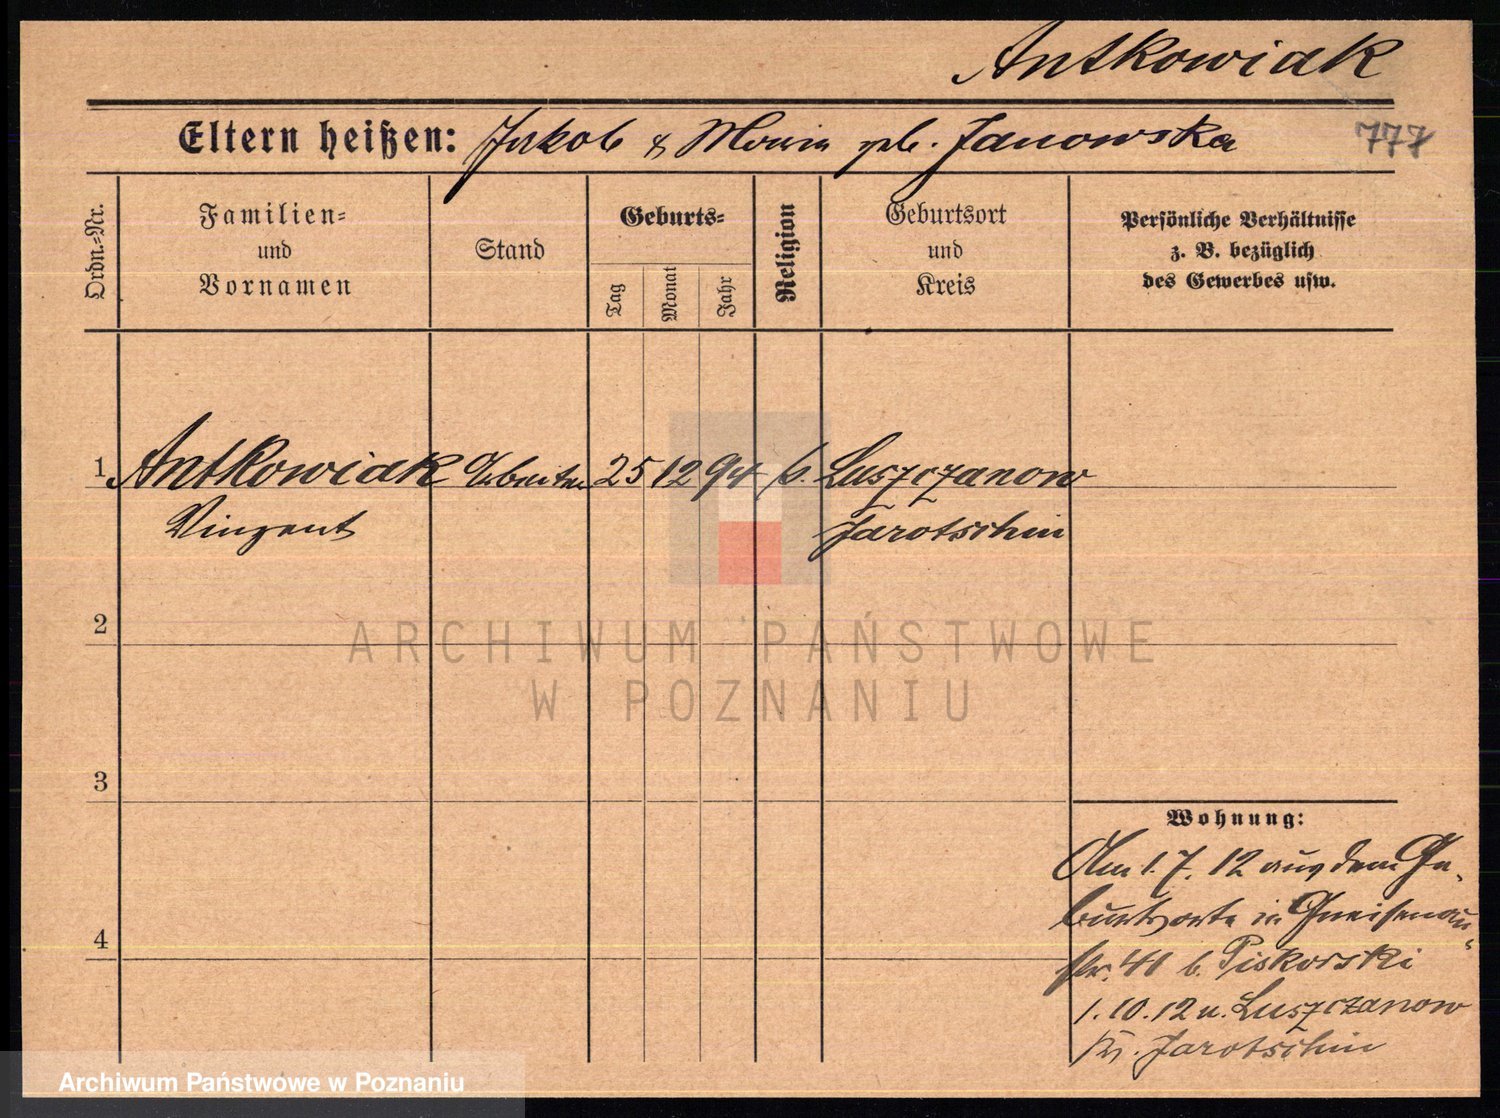 Antkowiak
Eltern heißen: Jakob & Maria geb. Janowska
777
Ordn.-Nr.
Familien-
und
Vornamen
Stand
Geburts-
Tag
Monat
Jahr
Religion
Geburtsort
und
Kreis
Persönliche Verhältnisse
z. B. bezüglich
des Gewerbes usw.
1 Antkowiak Arbeiter 25 12 94 Luszczanow
Vinzent Jarotschin
2
ARCHIWUM PAŃSTWOWE
W POZNANIU
3
Wohnung:
Am 1.7.12 aus dem Ge-
burtsorte in Gneisenau-
4
str. 41 b. Piskorski
1.10.12 n. Luszczanow
Kr. Jarotschin
Archiwum Państwowe w Poznaniu